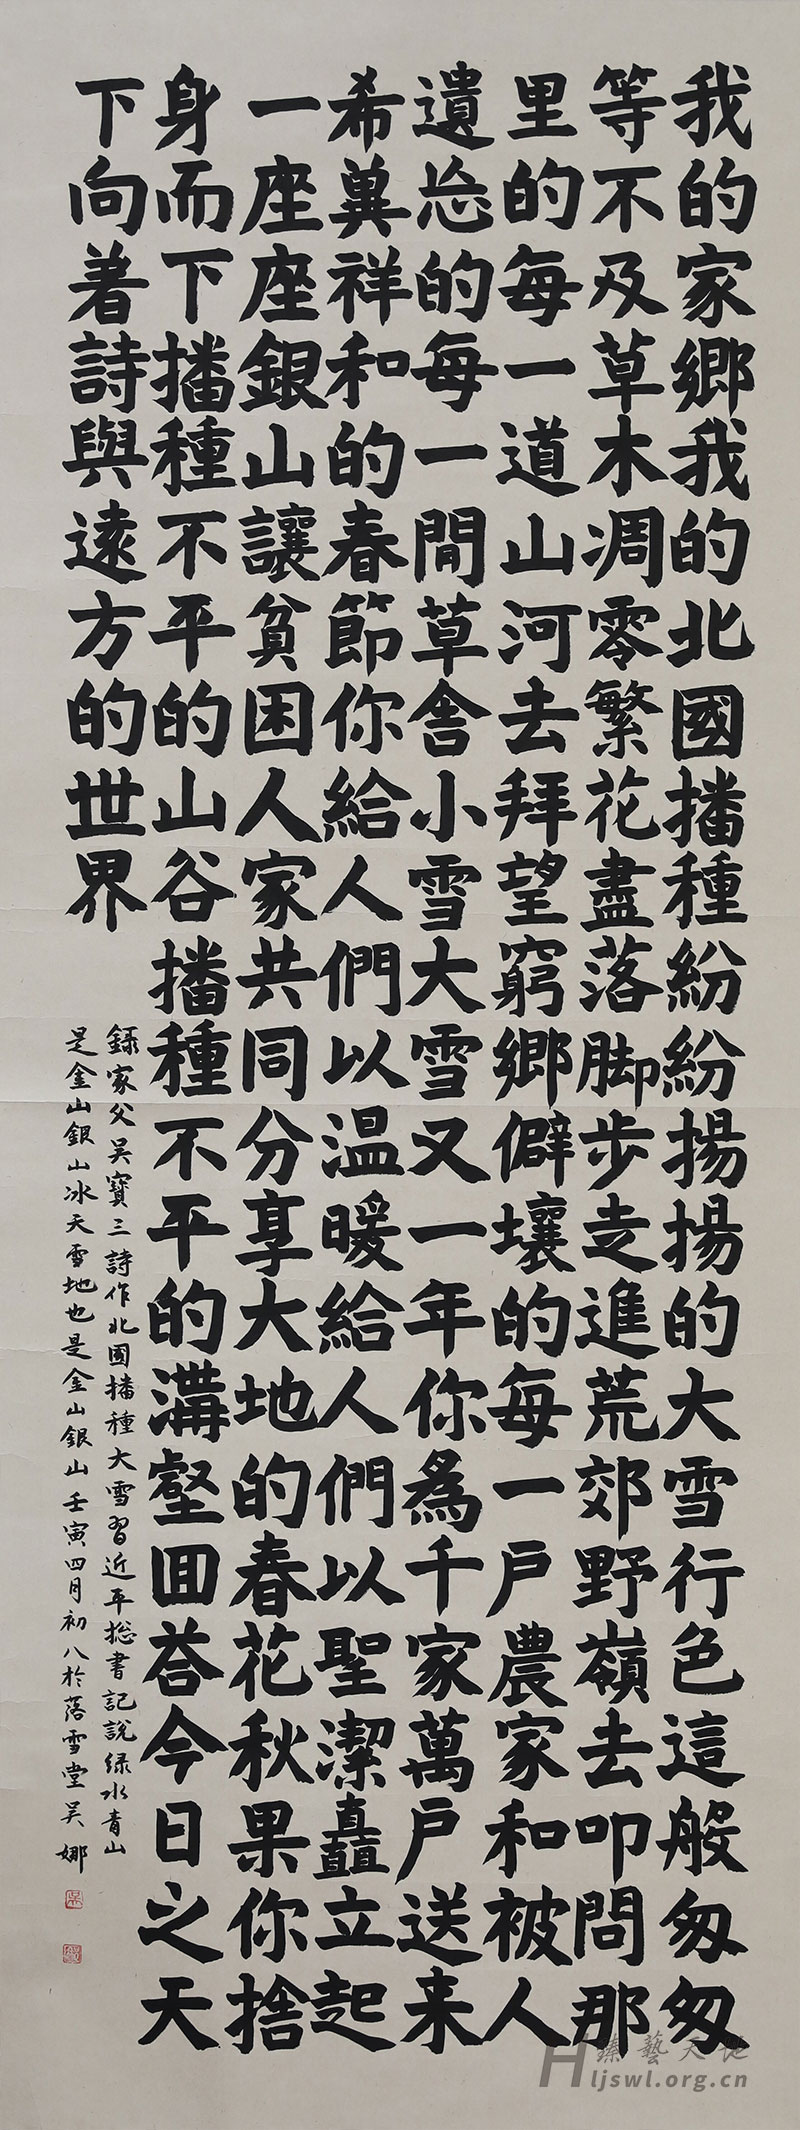 我的家鄉我的北國播種紛紛揚揚的大雪行色這般匆匆
等不及草木凋零繁花盡落脚步走進荒郊野嶺去叩問那
里的每一道山河去拜望窮鄉僻壤的每一戶農家和被人
遺忘的每一間草舍小雪大雪又一年你為千家萬戶送来
希冀祥和的春節你給人們以温暖給人們以聖潔矗立起
一座座銀山讓貧困人家共同分享大地的春花秋果你捨
身而下播種不平的山谷播種不平的溝壑回答今日之天
下向着詩與遠方的世界
録家父吴寶三詩作北國播種大雪習近平總書記說绿水青山
是金山銀山冰天雪地也是金山銀山壬寅四月初八於落雪堂吴娜
臻藝天地
ljswl.org.cn